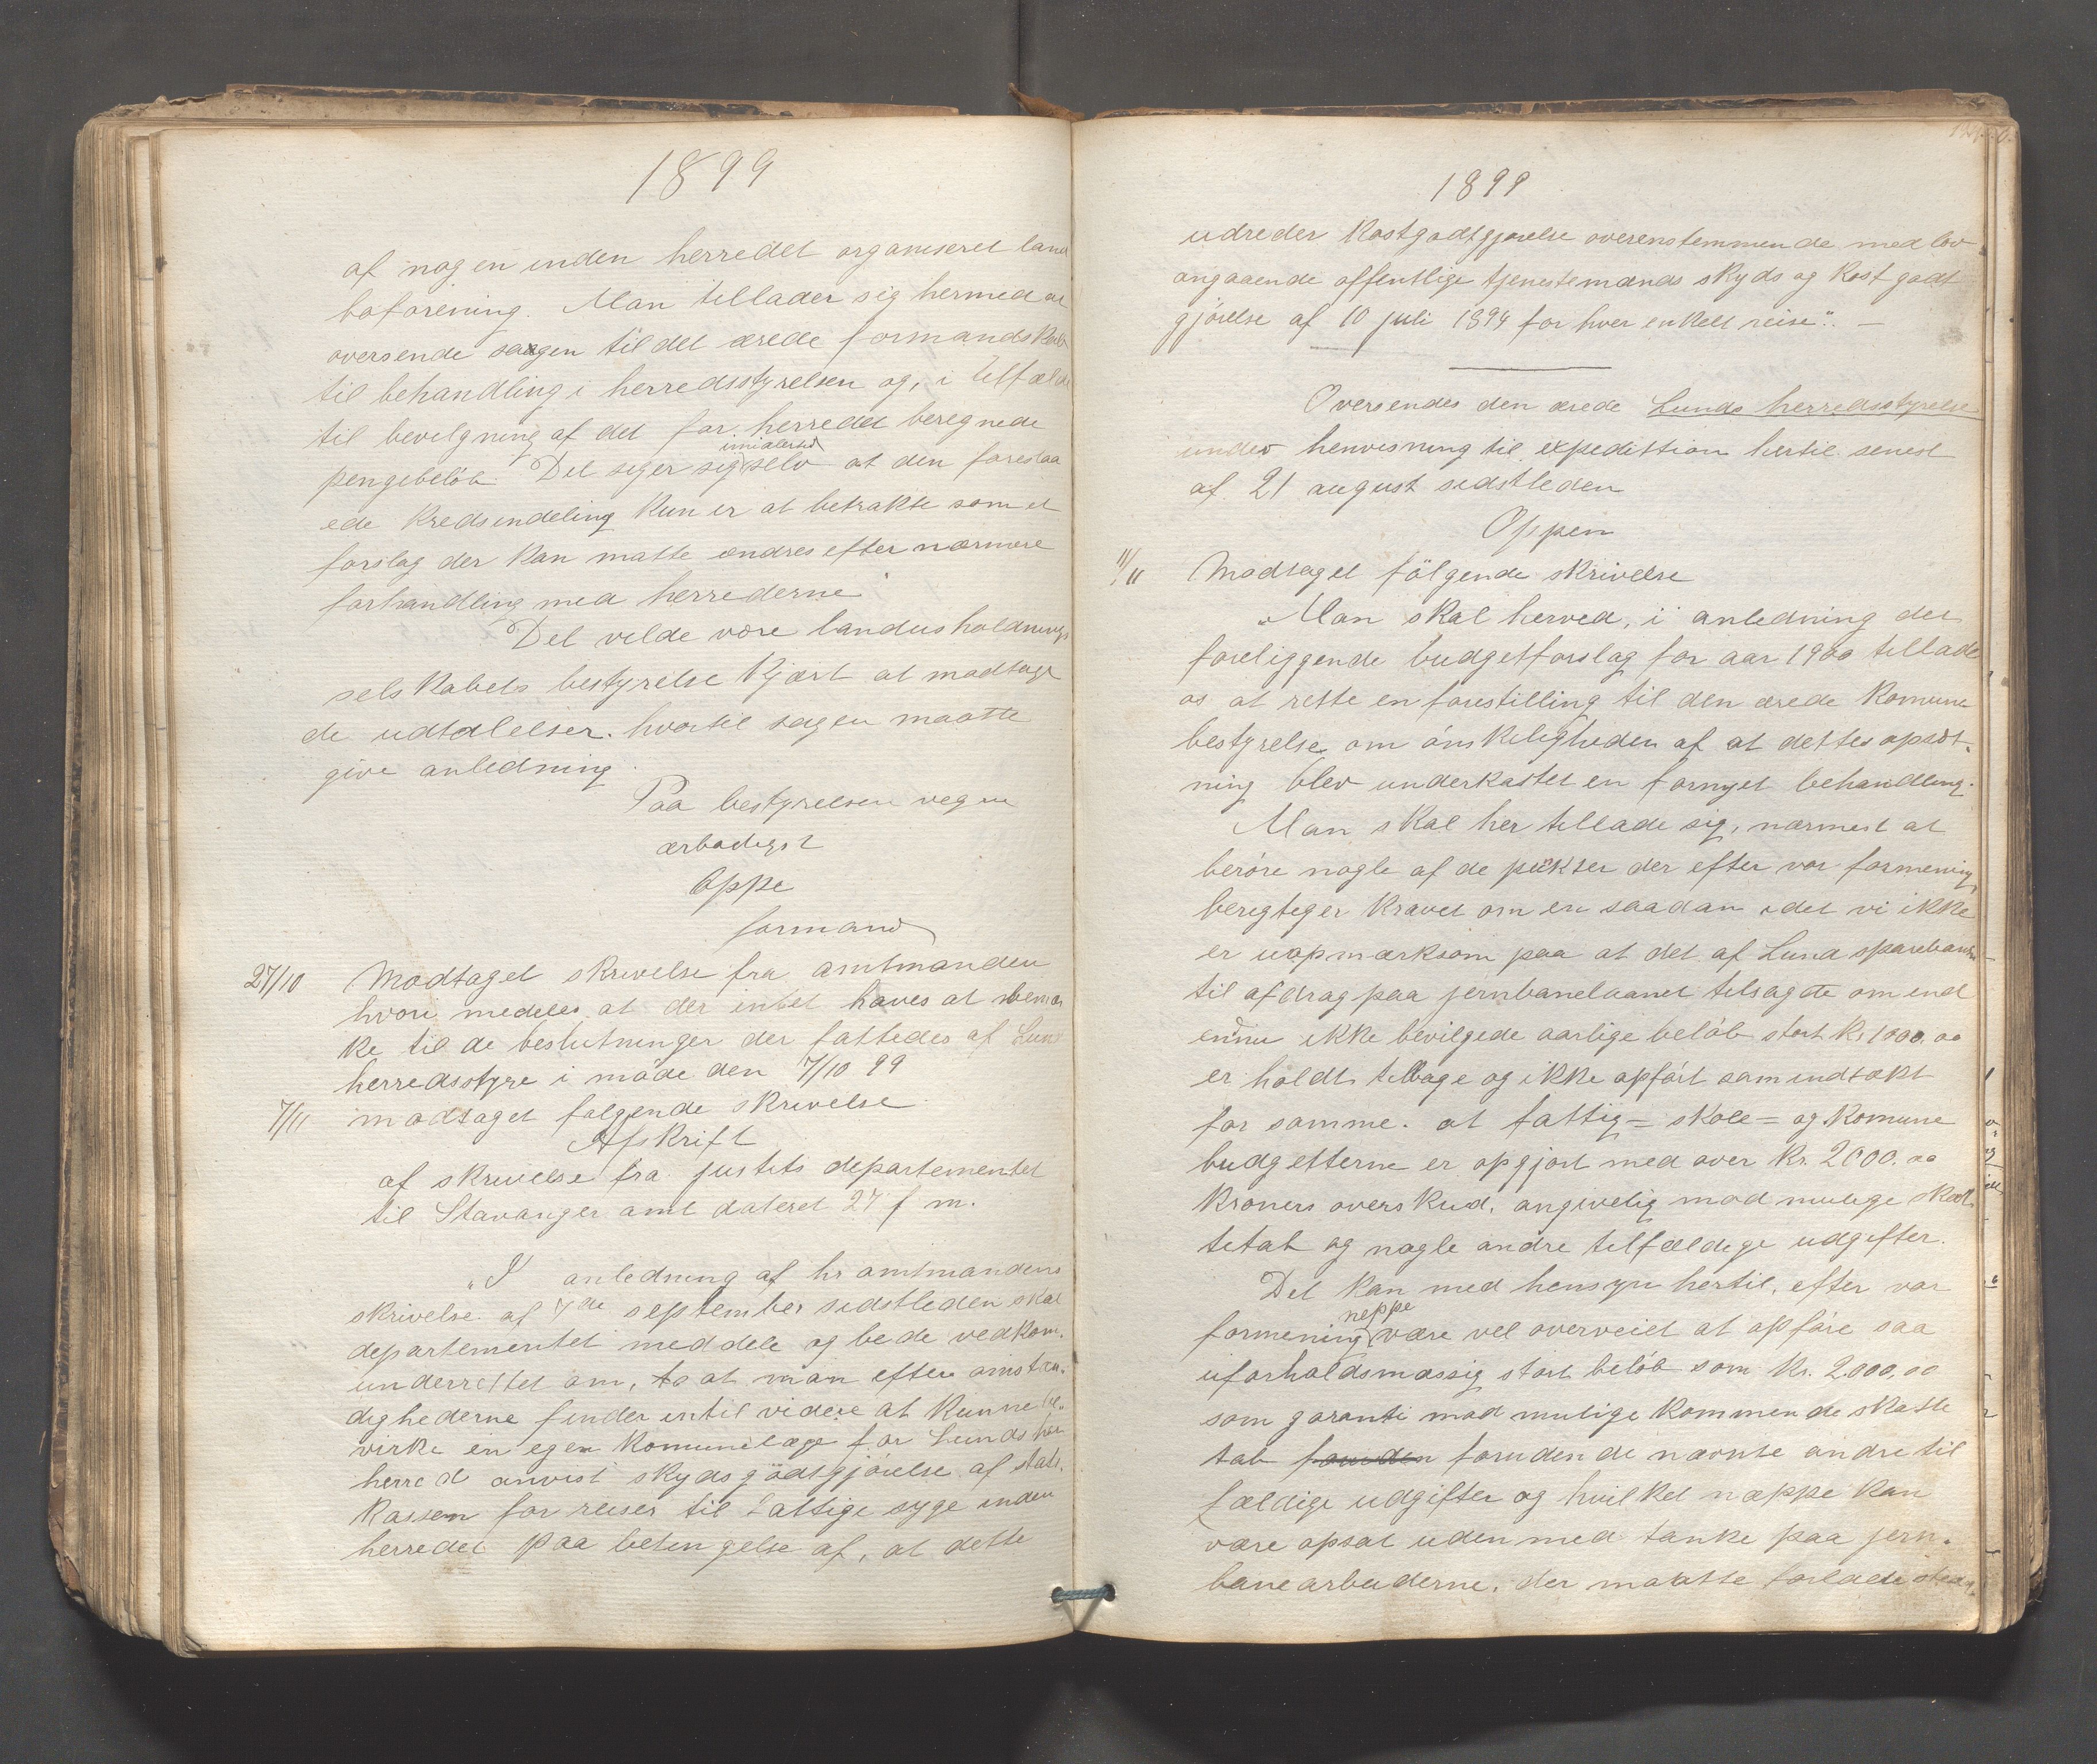 1899
af nogen inden herredet organiseret land
boforening. Man tillader sig hermed at
oversende saagen til det ærede formandskab
til behandling i herredsstyrelsen og, i tilfælde
til bevilgning af det for herredet beregnede
pengebeløb. Det siger sig imidlertid selv at den foreslaa
ede kredsindeling kun er at betrakte som et
forslag der kan matte ændres efter nærmere
forhandling med herrederne
Det vilde være landhusholdnings
selskabets bestyrelse kjært at modtage
de udtalelser. hvortil sagen maatte
give anledning.
Paa bestyrelsen vegne
ærbødigst
Oppe
formand
27/10 Modtaget skrivelse fra amtmanden
hvori medeles at der intet haves at bemær
ke til de beslutninger der fattedes af Lund
herredsstyre i møde den 7/10 99
7/11 modtaget følgende skrivelse
Afskrift
af skrivelse fra justits departementet
til Stavanger amt dateret 27 f m.
„I anledning af hr amtmandens
skrivelse af 7de september sidstleden skal
departementet meddele og bede vedkom.
underrettet om, at man efter omstæn.
dighederne finder intil videre at kunne til.
virke en egen komunelæge for Lunds
herred anvist skydsgodtgjørelse af stats.
kassen for reiser til fattige syge inden
herredet paa betingelse af, at dette
1899
udreder kostgodtgjørelse overenstemmende med lov
angaaende offentlige tjenestemænds skyds og kostgodt
gjørelse af 10 juli 1894 for hver enkelt reise". —
Oversendes den ærede Lunds herredsstyrelse
under henvisning til expedittion hertil senest
af 21 august sidstleden
Oppen
11/11 Modtaget følgende skrivelse
„Man skal herved, i anledning det
foreliggende budgetforslag for aar 1900 tillade
os at rette en forestilling til den ærede komune
bestyrelse om ønskeligheden af at dettes opsæt.
ning blev underkastet en fornyet behandling.
Man skal her tillade sig, nærmest at
berøre nogle af de pukter der efter vor formening
beregtiger kravet om en saadan idet vi ikke
er uopmærksom paa at det af Lund sparebank
til afdrag paa jernbanelaanet tilsagte om end
ennu ikke bevilgede aarlige beløb stort kr 1000.00
er holdt tilbage og ikke opført som indtækt
for samme. at fattig= skole= og komune
budgetterne er opgjort med over kr. 2000.00
kroners overskud. angivelig mod mulige skat
tetab og nogle andre tilfældige udgifter.
Det kan med hensyn hertil, efter vor
formening neppe være vel overveiet at opføre saa
uforholdsmæssig stort beløb som kr. 2000,00
som garanti mod mulige kommende skatte
tab foruden foruden de nævnte andre til
fældige udgifter og hvilket næppe kan
være opsat uden med tanke paa jern.
banearbeiderne. der maatte forlade